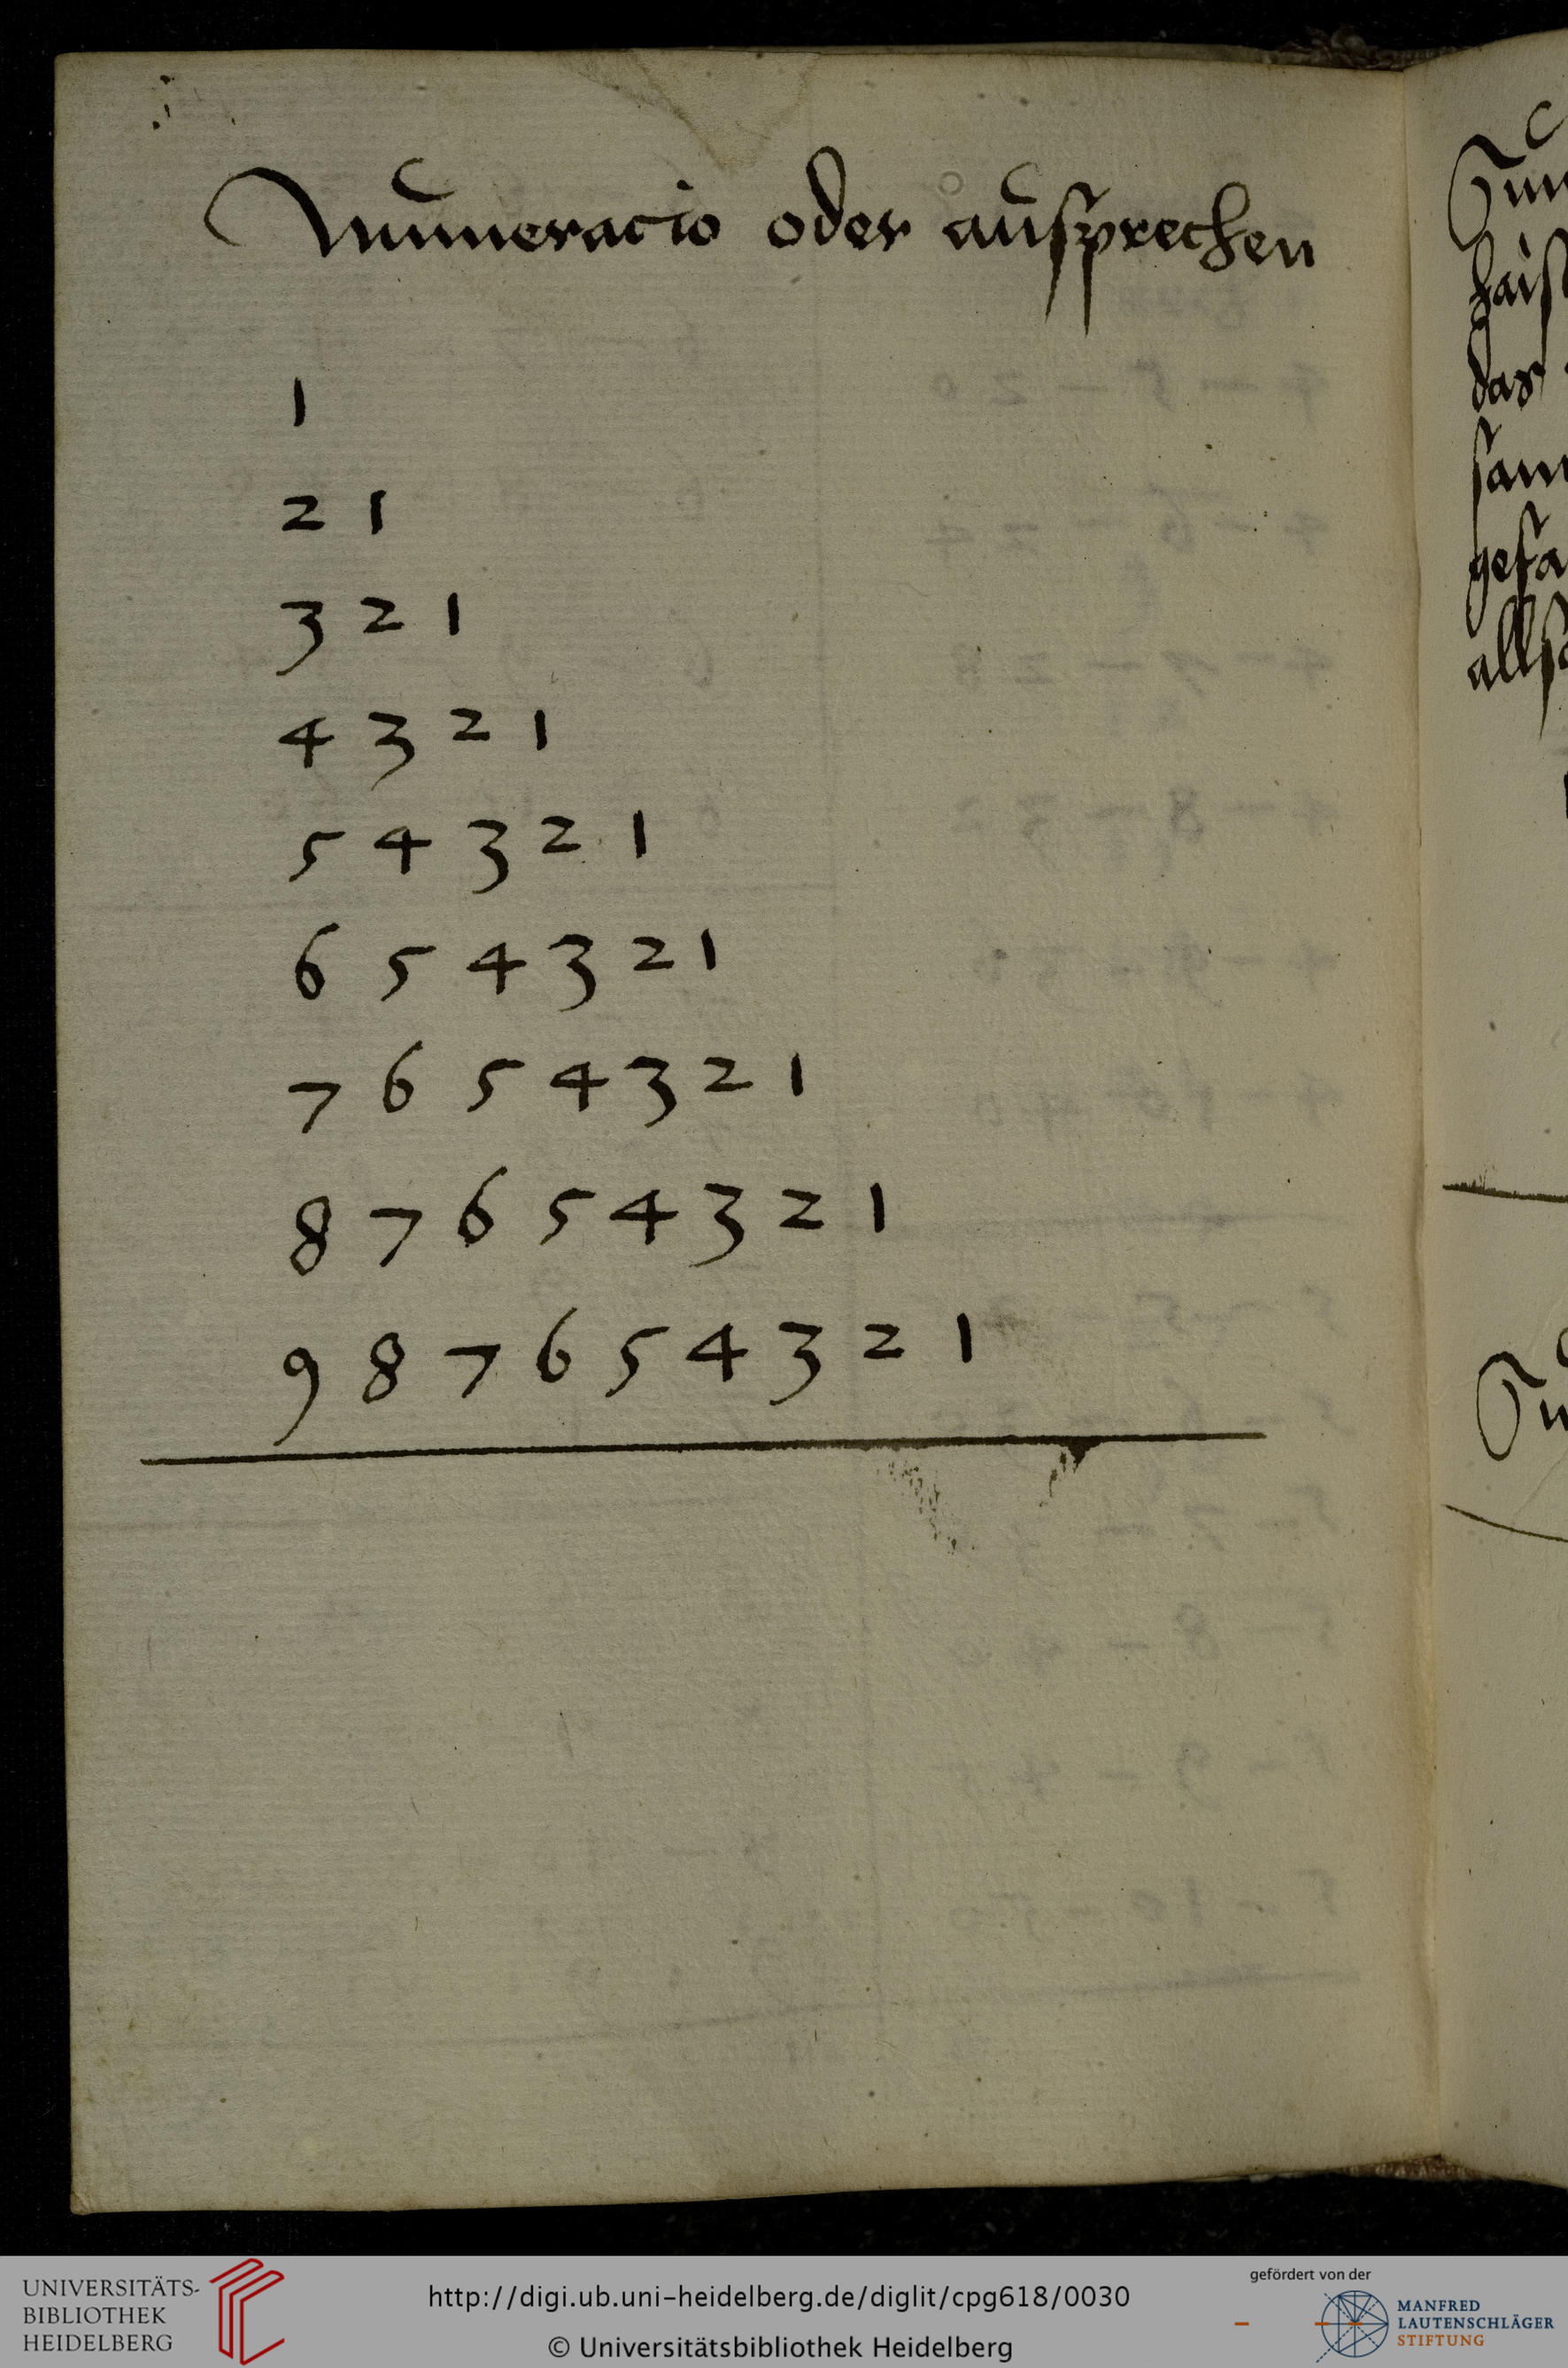 Numeracio oder ausprechen
1
2 1
3 2 1
4 3 2 1
5 4 3 2 1
6 5 4 3 2 1
7 6 5 4 3 2 1
8 7 6 5 4 3 2 1
9 8 7 6 5 4 3 2 1
das
UNIVERSITÄTS-
BIBLIOTHEK
HEIDELBERG
http://digi.ub.uni-heidelberg.de/diglit/cpg618/0030
© Universitätsbibliothek Heidelberg
gefördert von der
MANFRED
LAUTENSCHLÄGER
STIFTUNG